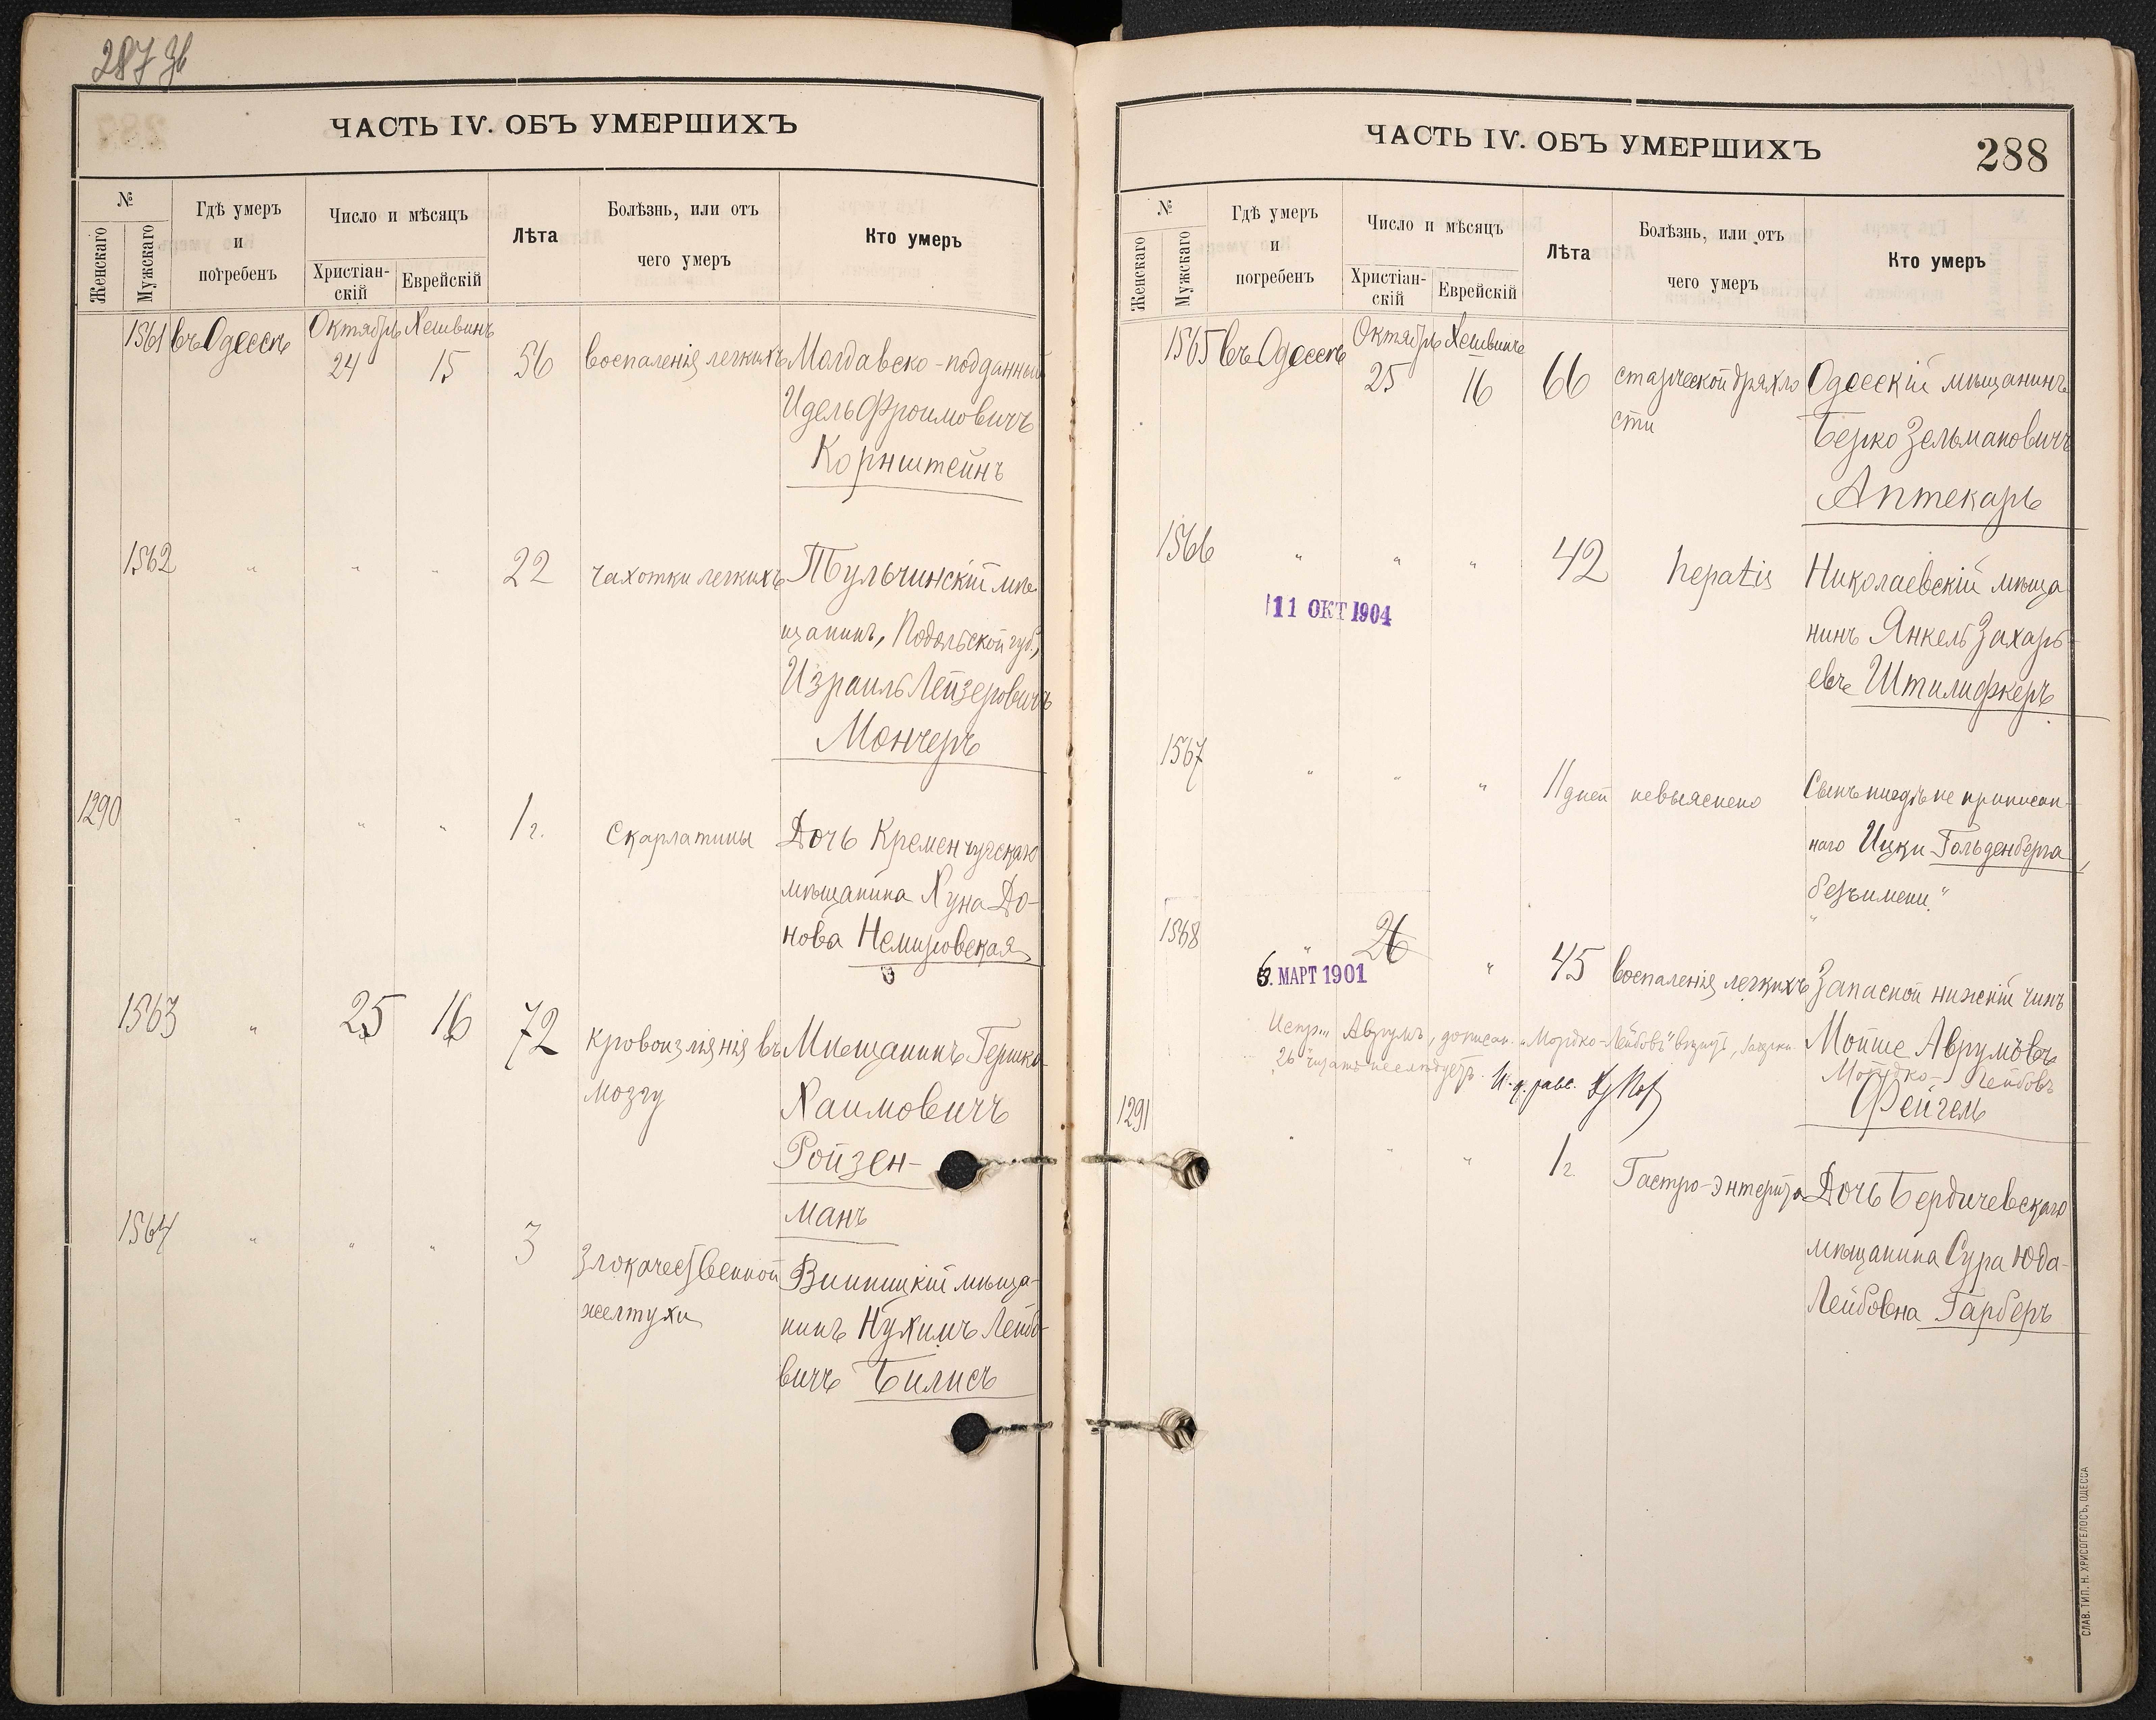 287 об
ЧАСТЬ IV. ОБЪ УМЕРШИХЪ
№
Женскаго
Мужскаго
Гдѣ умеръ
и
погребенъ
Число и мѣсяцъ
Христіан-
скій
Еврейскій
Лѣта
Болѣзнь, или отъ
чего умеръ
Кто умеръ
1561 въ Одессѣ Октябрь 24 Хешвинъ 15 56 воспаленія легкихъ Молдавско-подданный
Идель Фроимовичъ
Корнштейнъ
1562 " " " 22 чахотки легкихъ Тульчинскій мѣ
щанинъ, Подольской губ.,
Израиль Лейзеровичъ
Мончеръ
1290 " " " 1 г. Скарлатины Дочь Кременчугскаго
мѣщанина Хуна До-
нова Немировская
1563 " 25 16 72 Кровоизліянія въ Мѣщанинъ Гершко-
мозгу Хаимовичъ
Ройзен-
манъ
1564 " " " 3 Злокачественной Винницкій мѣща-
желтухи нинъ Нухимъ Лейбо-
вичъ Билисъ
ЧАСТЬ IV. ОБЪ УМЕРШИХЪ
288
№
Женскаго
Мужскаго
Гдѣ умеръ
и
погребенъ
Число и мѣсяцъ
Христіан-
скій
Еврейскій
Лѣта
Болѣзнь, или отъ
чего умеръ
Кто умеръ
1565 въ Одессѣ Октябрь 25 Хешвинъ 16 66 старческой дряхло Одесскій мѣщанинъ
сти Берко Зельмановичъ
Аптекарь
1566 " " " 42 hepatis Николаевскій мѣща
11 ОКТ 1904
нинъ Янкель Захарь-
евъ Штилифкеръ
1567 " " " 11 дней невыяснено Сынъ нигдѣ не приписан-
наго Ицки Гольденберга,
безъ имени."
1568 " 26 " 45 воспаленія легкихъ Запасной нижній чинъ
6. МАРТ 1901
Мойше Аврумовъ
Мордко-Лейбовъ
Фейгель
Аврумъ, дописан. "Мордко-Лейбовъ"
26 читать не слѣдуетъ. И. д. равв.
1291 " " " 1 г. Гастро-энтерита Дочь Бердичевскаго
мѣщанина Сура Юда-
Лейбовна Гарберъ
СЛАВ. ТИП. Н. ХРИСОГЕЛОСЪ, ОДЕССА